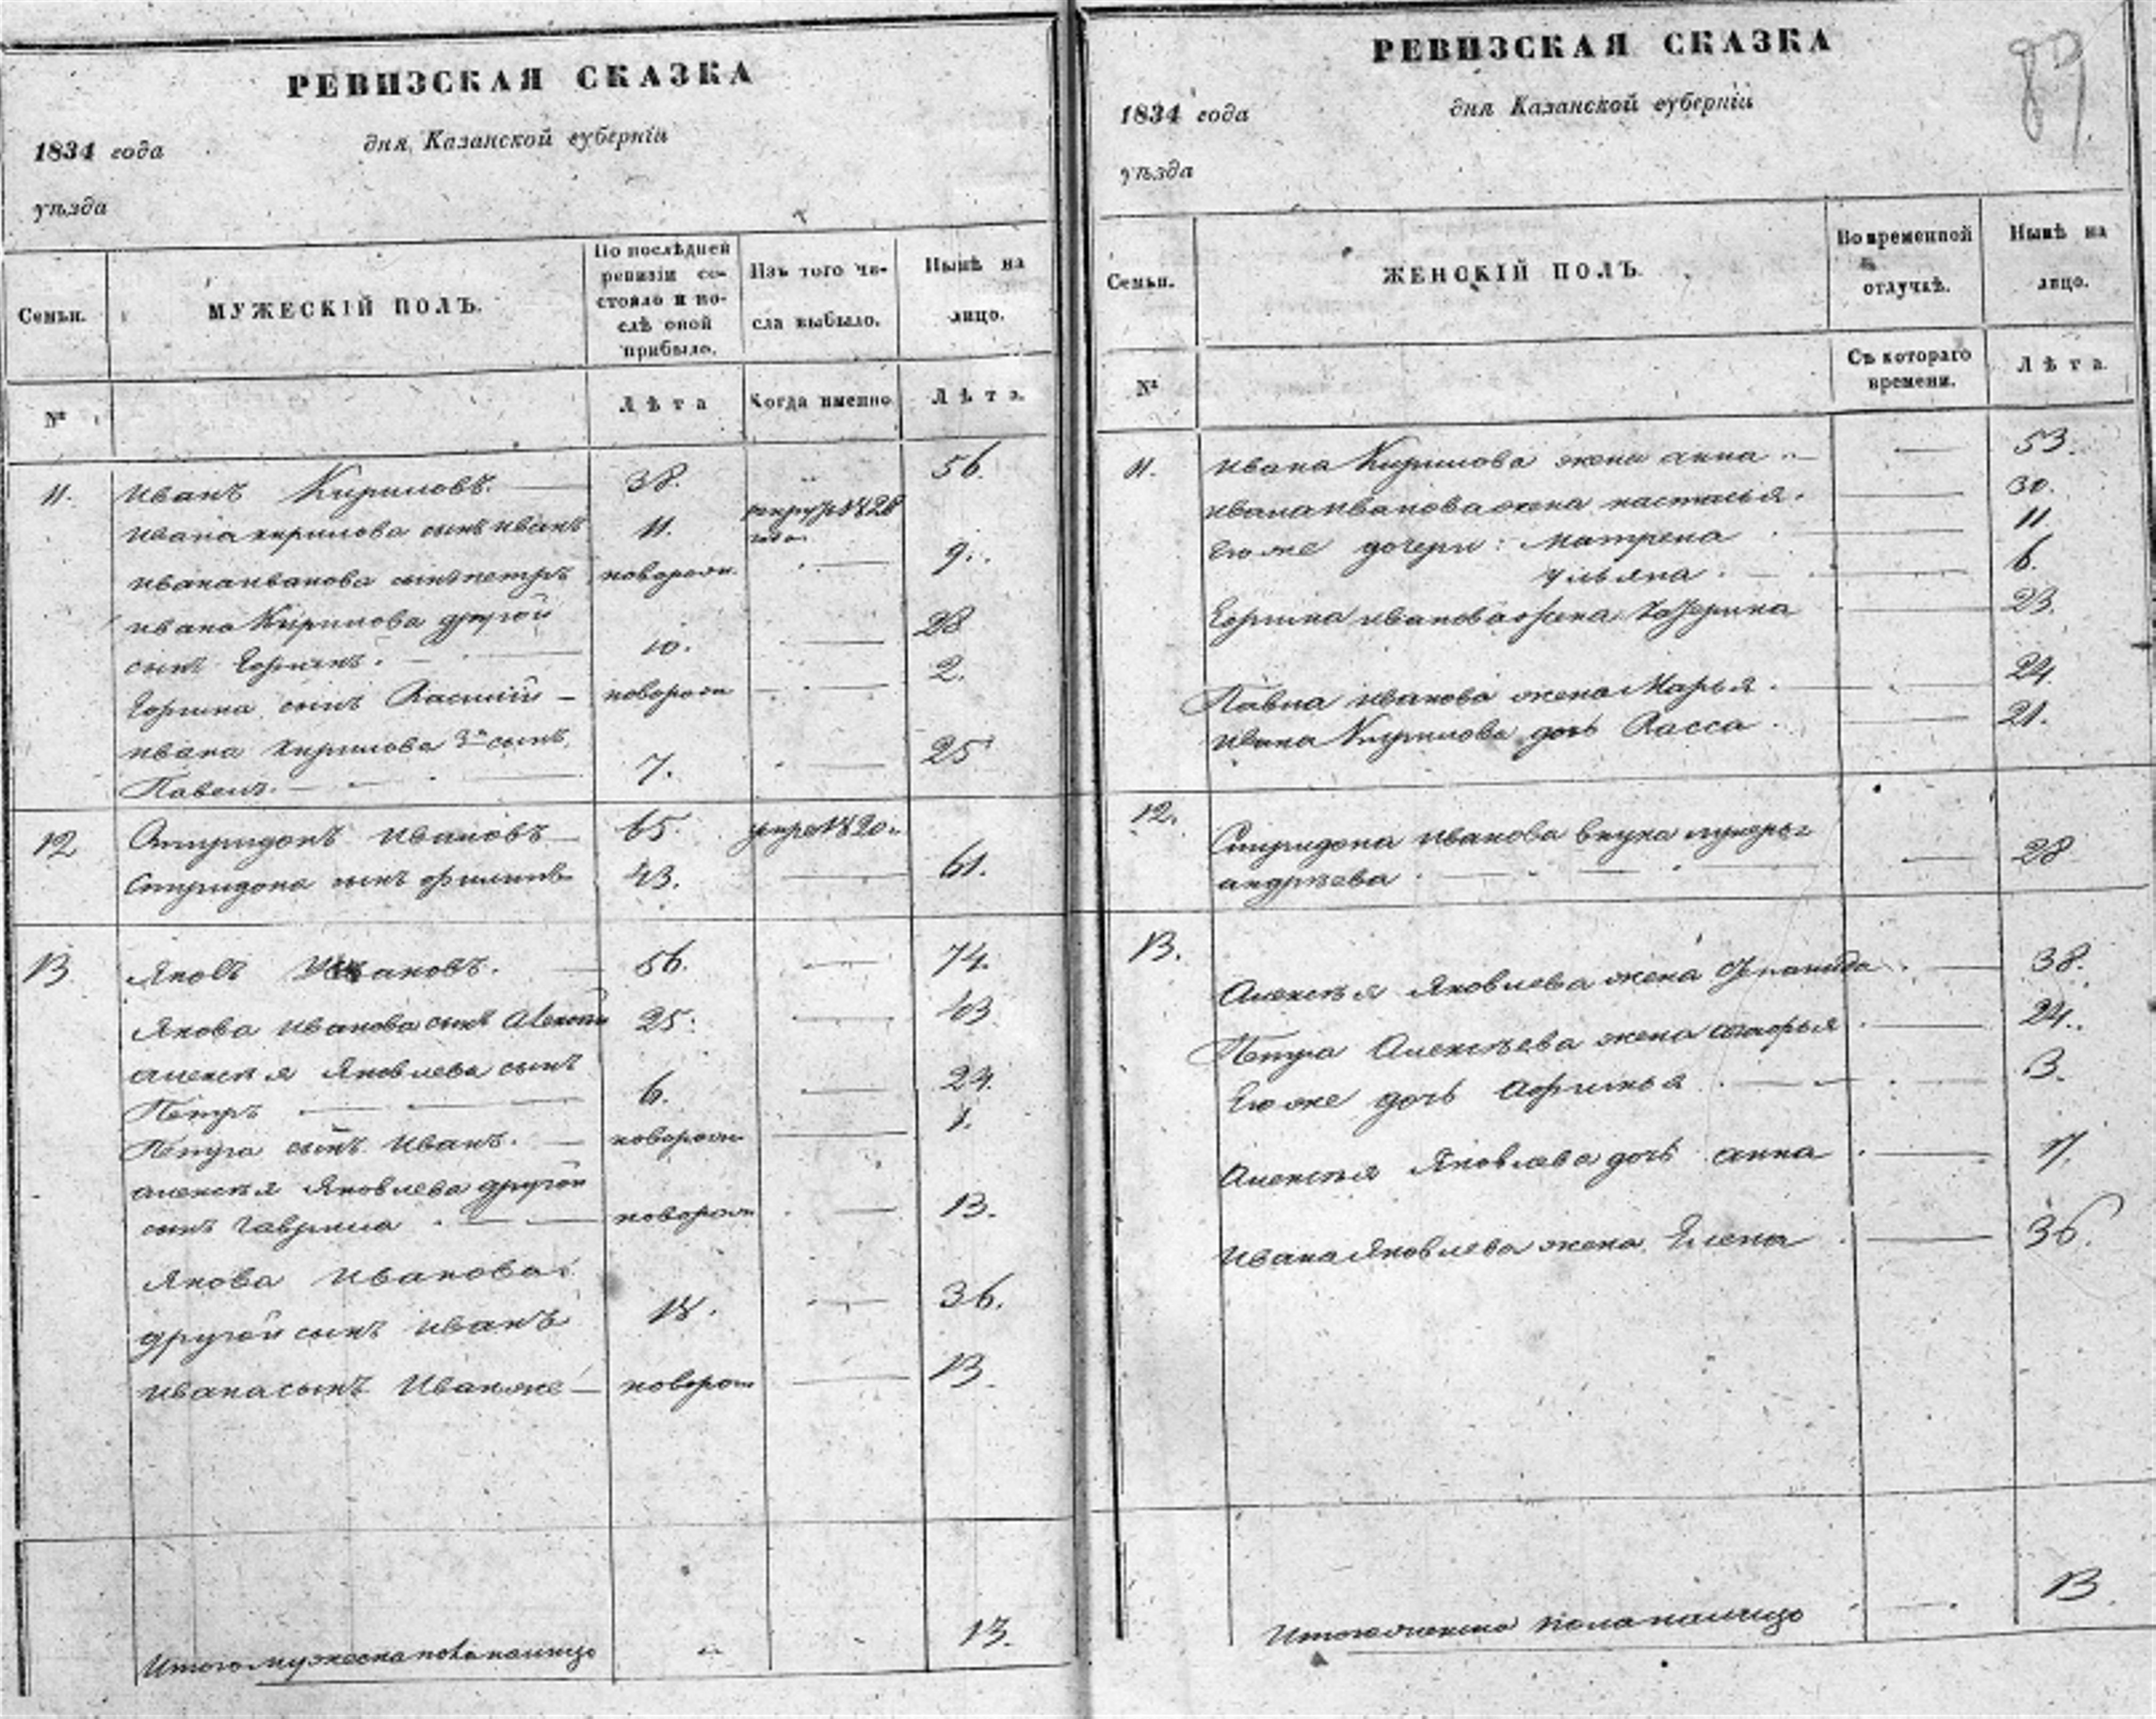 РЕВИЗСКАЯ СКАЗКА
1834 года
дня Казанской губерніи
уѣзда
Семьи.
МУЖЕСКІЙ ПОЛЪ.
По послѣдней ревизіи состояло и послѣ оной прибыло.
Изъ того числа выбыло.
Нынѣ на лицо.
№
Лѣта
Когда именно
Лѣта.
11. Иванъ Кириловъ. 38. 56.
Ивана Кирилова сынъ Иванъ 11. 1828
Ивана Иванова сынъ Петръ новорож. 9.
Ивана Кирилова другой
сынъ 10. 28
сынъ Василий новорож 2.
Ивана Кирилова 3й сынъ
Павелъ. 7. 25
12 Спиридонъ Ивановъ 65. 1820
Спиридона сынъ Филипъ 43. 61.
13 Яковъ Ивановъ. 56. 74.
Якова Иванова сынъ Алексей 25. 43
Алексѣя Яковлева сынъ
Петръ 6. 24.
Петра сынъ Иванъ. новорож 1.
Алексѣя Яковлева другой
сынъ Гаврила новорож 13.
Якова Иванова
другой сынъ Иванъ 18. 36.
Ивана сынъ Иванже новорож 13.
Итого мужеска пола налицо 13.
РЕВИЗСКАЯ СКАЗКА
87
1834 года
дня Казанской губерніи
уѣзда
Семьи.
ЖЕНСКІЙ ПОЛЪ.
Во временной отлучкѣ.
Нынѣ на лицо.
№
Съ котораго времени.
Лѣта.
11. Ивана Кирилова жена Анна 53.
Ивана Иванова жена Настасья. 30.
Его же дочери: Матрена 11
Ульяна. 6.
Иванова жена Катерина 23.
Павла Иванова жена Марья. 24.
Ивана Кирилова дочь Васса 21.
12. Спиридона Иванова внука
Андрѣева 28
13. Алексѣя Яковлева жена 38.
Петра Алексѣева жена 24.
Его же дочь 3.
Алексѣя Яковлева дочь Анна 17.
Ивана Яковлева жена Елена 36.
Итого женска пола налицо 13